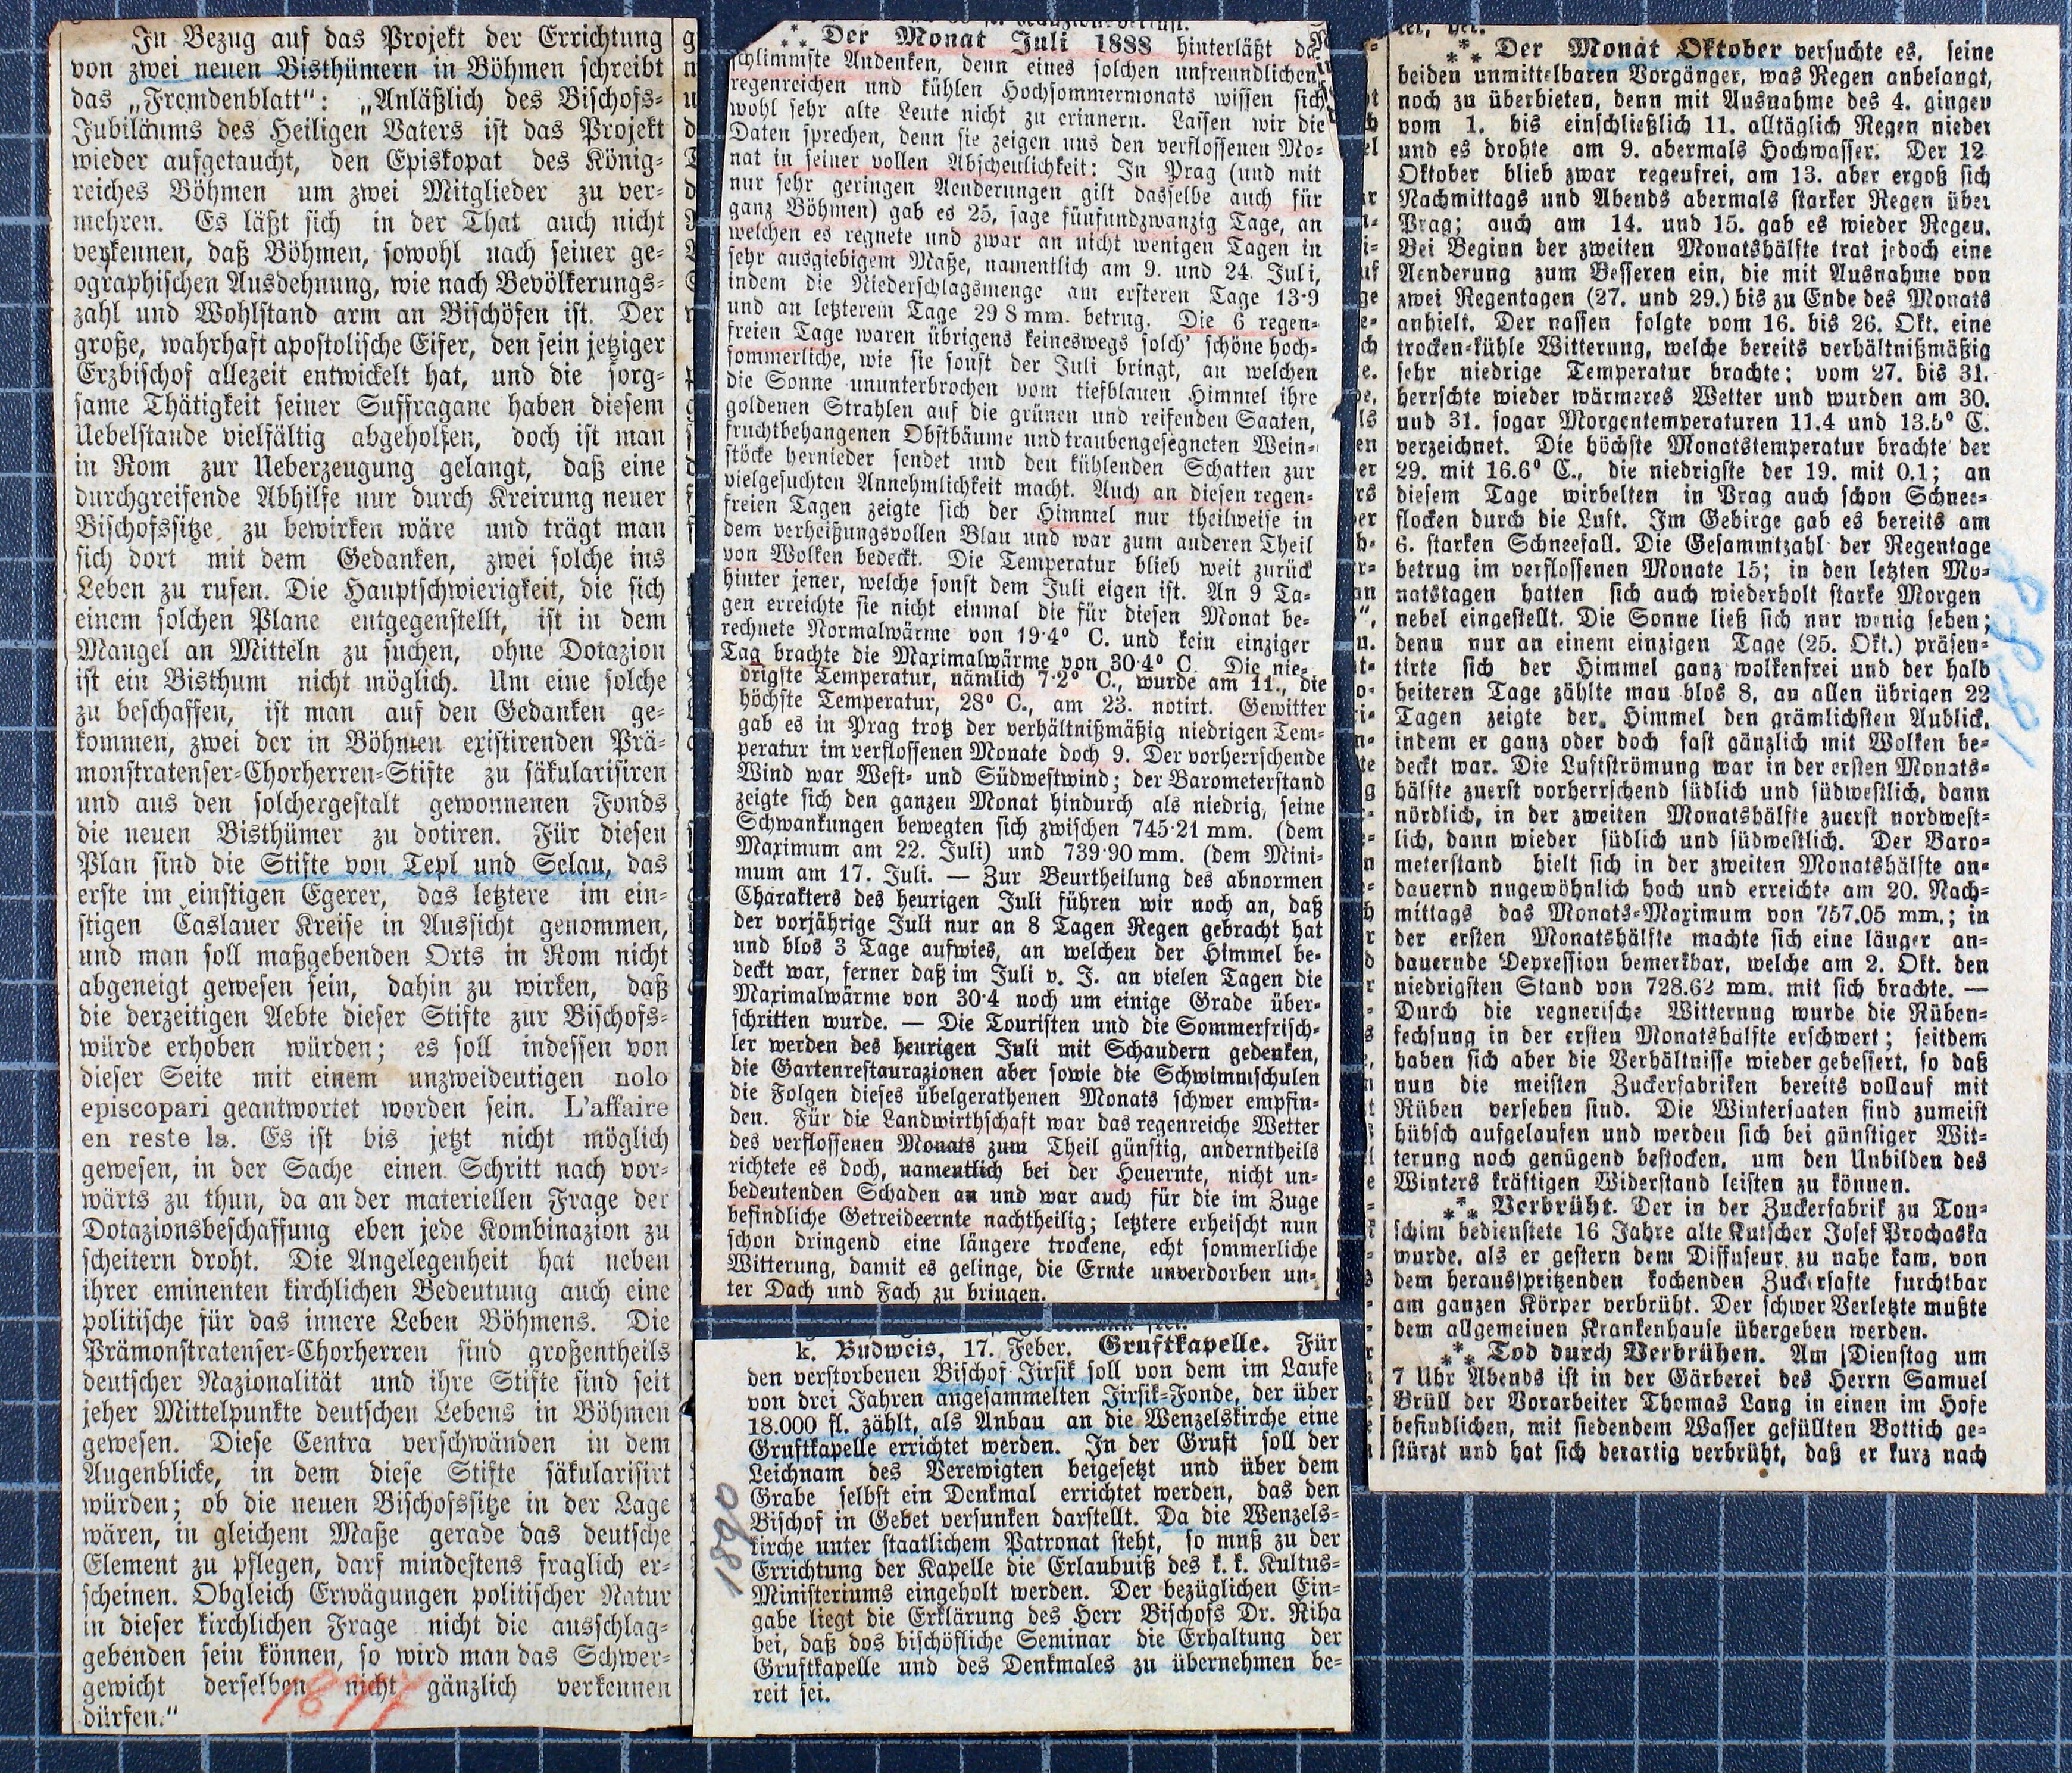 In Bezug auf das Projekt der Errichtung
von zwei neuen Bisthümern in Böhmen schreibt
das „Fremdenblatt“: „Anläßlich des Bischofs-
Jubiläums des Heiligen Vaters ist das Projekt
wieder aufgetaucht, den Episkopat des König-
reiches Böhmen um zwei Mitglieder zu ver-
mehren. Es läßt sich in der That auch nicht
verkennen, daß Böhmen, sowohl nach seiner ge-
ographischen Ausdehnung, wie nach Bevölkerungs-
zahl und Wohlstand arm an Bischöfen ist. Der
große, wahrhaft apostolische Eifer, den sein jetziger
Erzbischof allezeit entwickelt hat, und die sorg-
same Thätigkeit seiner Suffragane haben diesem
Uebelstande vielfältig abgeholfen, doch ist man
in Rom zur Ueberzeugung gelangt, daß eine
durchgreifende Abhilfe nur durch Kreirung neuer
Bischofssitze zu bewirken wäre und trägt man
sich dort mit dem Gedanken, zwei solche ins
Leben zu rufen. Die Hauptschwierigkeit, die sich
einem solchen Plane entgegenstellt, ist in dem
Mangel an Mitteln zu suchen, ohne Dotazion
ist ein Bisthum nicht möglich. Um eine solche
zu beschaffen, ist man auf den Gedanken ge-
kommen, zwei der in Böhmen existirenden Prä-
monstratenser-Chorherren-Stifte zu säkularisiren
und aus den solchergestalt gewonnenen Fonds
die neuen Bisthümer zu dotiren. Für diesen
Plan sind die Stifte von Tepl und Selau, das
erste im einstigen Egerer, das letztere im ein-
stigen Časlauer Kreise in Aussicht genommen,
und man soll maßgebenden Orts in Rom nicht
abgeneigt gewesen sein, dahin zu wirken, daß
die derzeitigen Aebte dieser Stifte zur Bischofs-
würde erhoben würden; es soll indessen von
dieser Seite mit einem unzweideutigen nolo
episcopari geantwortet worden sein. L'affaire
en reste la. Es ist bis jetzt nicht möglich
gewesen, in der Sache einen Schritt nach vor-
wärts zu thun, da an der materiellen Frage der
Dotazionsbeschaffung eben jede Kombinazion zu
scheitern droht. Die Angelegenheit hat neben
ihrer eminenten kirchlichen Bedeutung auch eine
politische für das innere Leben Böhmens. Die
Prämonstratenser-Chorherren sind großentheils
deutscher Nazionalität und ihre Stifte sind seit
jeher Mittelpunkte deutschen Lebens in Böhmen
gewesen. Diese Centra verschwänden in dem
Augenblicke, in dem diese Stifte säkularisirt
würden; ob die neuen Bischofssitze in der Lage
wären, in gleichem Maße gerade das deutsche
Element zu pflegen, darf mindestens fraglich er-
scheinen. Obgleich Erwägungen politischer Natur
in dieser kirchlichen Frage nicht die ausschlag-
gebenden sein können, so wird man das Schwer-
gewicht derselben nicht gänzlich verkennen
dürfen.“
1877
⁎* Der Monat Juli 1888 hinterläßt das
schlimmste Andenken, denn eines solchen unfreundlichen,
regenreichen und kühlen Hochsommermonats wissen sich
wohl sehr alte Leute nicht zu erinnern. Lassen wir die
Daten sprechen, denn sie zeigen uns den verflossenen Mo-
nat in seiner vollen Abscheulichkeit: In Prag (und mit
nur sehr geringen Aenderungen gilt dasselbe auch für
ganz Böhmen) gab es 25, sage fünfundzwanzig Tage, an
welchen es regnete und zwar an nicht wenigen Tagen in
sehr ausgiebigem Maße, namentlich am 9. und 24. Juli,
indem die Niederschlagsmenge am ersteren Tage 13·9
und an letzterem Tage 29 8 mm. betrug. Die 6 regen-
freien Tage waren übrigens keineswegs solch' schöne hoch-
sommerliche, wie sie sonst der Juli bringt, an welchen
die Sonne ununterbrochen vom tiefblauen Himmel ihre
goldenen Strahlen auf die grünen und reifenden Saaten,
fruchtbehangenen Obstbäume und traubengesegneten Wein-
stöcke hernieder sendet und den kühlenden Schatten zur
vielgesuchten Annehmlichkeit macht. Auch an diesen regen-
freien Tagen zeigte sich der Himmel nur theilweise in
dem verheißungsvollen Blau und war zum anderen Theil
von Wolken bedeckt. Die Temperatur blieb weit zurück
hinter jener, welche sonst dem Juli eigen ist. An 9 Ta-
gen erreichte sie nicht einmal die für diesen Monat be-
rechnete Normalwärme von 19·4° C. und kein einziger
Tag brachte die Maximalwärme von 30·4° C. Die nie-
drigste Temperatur, nämlich 7·2° C., wurde am 11., die
höchste Temperatur, 28° C., am 23. notirt. Gewitter
gab es in Prag trotz der verhältnißmäßig niedrigen Tem-
peratur im verflossenen Monate doch 9. Der vorherrschende
Wind war West- und Südwestwind; der Barometerstand
zeigte sich den ganzen Monat hindurch als niedrig, seine
Schwankungen bewegten sich zwischen 745·21 mm. (dem
Maximum am 22. Juli) und 739·90 mm. (dem Mini-
mum am 17. Juli. — Zur Beurtheilung des abnormen
Charakters des heurigen Juli führen wir noch an, daß
der vorjährige Juli nur an 8 Tagen Regen gebracht hat
und blos 3 Tage aufwies, an welchen der Himmel be-
deckt war, ferner daß im Juli v. J. an vielen Tagen die
Maximalwärme von 30·4 noch um einige Grade über-
schritten wurde. — Die Touristen und die Sommerfrisch-
ler werden des heurigen Juli mit Schaudern gedenken,
die Gartenrestaurazionen aber sowie die Schwimmschulen
die Folgen dieses übelgerathenen Monats schwer empfin-
den. Für die Landwirthschaft war das regenreiche Wetter
des verflossenen Monats zum Theil günstig, anderntheils
richtete es doch, namentlich bei der Heuernte, nicht un-
bedeutenden Schaden an und war auch für die im Zuge
befindliche Getreideernte nachtheilig; letztere erheischt nun
schon dringend eine längere trockene, echt sommerliche
Witterung, damit es gelinge, die Ernte unverdorben un-
ter Dach und Fach zu bringen.
k. Budweis, 17. Feber. Gruftkapelle. Für
den verstorbenen Bischof Jirsik soll von dem im Laufe
von drei Jahren angesammelten Jirsik-Fonde, der über
18.000 fl. zählt, als Anbau an die Wenzelskirche eine
Gruftkapelle errichtet werden. In der Gruft soll der
Leichnam des Verewigten beigesetzt und über dem
Grabe selbst ein Denkmal errichtet werden, das den
Bischof in Gebet versunken darstellt. Da die Wenzels-
kirche unter staatlichem Patronat steht, so muß zu der
Errichtung der Kapelle die Erlaubniß des k. k. Kultus-
Ministeriums eingeholt werden. Der bezüglichen Ein-
gabe liegt die Erklärung des Herr Bischofs Dr. Řiha
bei, daß dos bischöfliche Seminar die Erhaltung der
Gruftkapelle und des Denkmales zu übernehmen be-
reit sei.
1890
*⁎* Der Monat Oktober versuchte es, seine
beiden unmittelbaren Vorgänger, was Regen anbelangt,
noch zu überbieten, denn mit Ausnahme des 4. gingen
vom 1. bis einschließlich 11. alltäglich Regen nieder
und es drohte am 9. abermals Hochwasser. Der 12
Oktober blieb zwar regenfrei, am 13. aber ergoß sich
Nachmittags und Abends abermals starker Regen über
Prag; auch am 14. und 15. gab es wieder Regen.
Bei Beginn der zweiten Monatshälfte trat jedoch eine
Aenderung zum Besseren ein, die mit Ausnahme von
zwei Regentagen (27. und 29.) bis zu Ende des Monats
anhielt. Der nassen folgte vom 16. bis 26. Okt. eine
trocken-kühle Witterung, welche bereits verhältnißmäßig
sehr niedrige Temperatur brachte; vom 27. bis 31.
herrschte wieder wärmeres Wetter und wurden am 30.
und 31. sogar Morgentemperaturen 11.4 und 13.5° C.
verzeichnet. Die höchste Monatstemperatur brachte der
29. mit 16.6° C., die niedrigste der 19. mit 0.1; an
diesem Tage wirbelten in Prag auch schon Schnee-
flocken durch die Luft. Im Gebirge gab es bereits am
6. starken Schneefall. Die Gesammtzahl der Regentage
betrug im verflossenen Monate 15; in den letzten Mo-
natstagen hatten sich auch wiederholt starke Morgen
nebel eingestellt. Die Sonne ließ sich nur wenig sehen;
denn nur an einem einzigen Tage (25. Okt.) präsen-
tirte sich der Himmel ganz wolkenfrei und der halb
heiteren Tage zählte man blos 8, an allen übrigen 22
Tagen zeigte der Himmel den grämlichsten Anblick,
indem er ganz oder doch fast gänzlich mit Wolken be-
deckt war. Die Luftströmung war in der ersten Monats-
hälfte zuerst vorherrschend südlich und südwestlich, dann
nördlich, in der zweiten Monatshälfte zuerst nordwest-
lich, dann wieder südlich und südwestlich. Der Baro-
meterstand hielt sich in der zweiten Monatshälfte an-
dauernd nngewöhnlich hoch und erreichte am 20. Nach-
mittags das Monats-Maximum von 757.05 mm.; in
der ersten Monatshälfte machte sich eine länger an-
dauernde Depression bemerkbar, welche am 2. Okt. den
niedrigsten Stand von 728.62 mm. mit sich brachte. —
Durch die regnerische Witternng wurde die Rüben-
fechsung in der ersten Monatshälfte erschwert; seitdem
haben sich aber die Verhältnisse wieder gebessert, so daß
nun die meisten Zuckerfabriken bereits vollauf mit
Rüben versehen sind. Die Wintersaaten sind zumeist
hübsch aufgelaufen und werden sich bei günstiger Wit-
terung noch genügend bestocken, um den Unbilden des
Winters kräftigen Widerstand leisten zu können.
*⁎* Verbrüht. Der in der Zuckerfabrik zu Ton-
schim bedienstete 16 Jahre alte Kutscher Josef Prochaska
wurde, als er gestern dem Diffuseur zu nahe kam, von
dem herausspritzenden kochenden Zuckersafte furchtbar
am ganzen Körper verbrüht. Der schwer Verletzte mußte
dem allgemeinen Krankenhause übergeben werden.
*⁎* Tod durch Verbrühen. Am Dienstag um
7 Uhr Abends ist in der Gärberei des Herrn Samuel
Brüll der Vorarbeiter Thomas Lang in einen im Hofe
befindlichen, mit siedendem Wasser gefüllten Bottich ge-
stürzt und hat sich derartig verbrüht, daß er kurz nach
1888